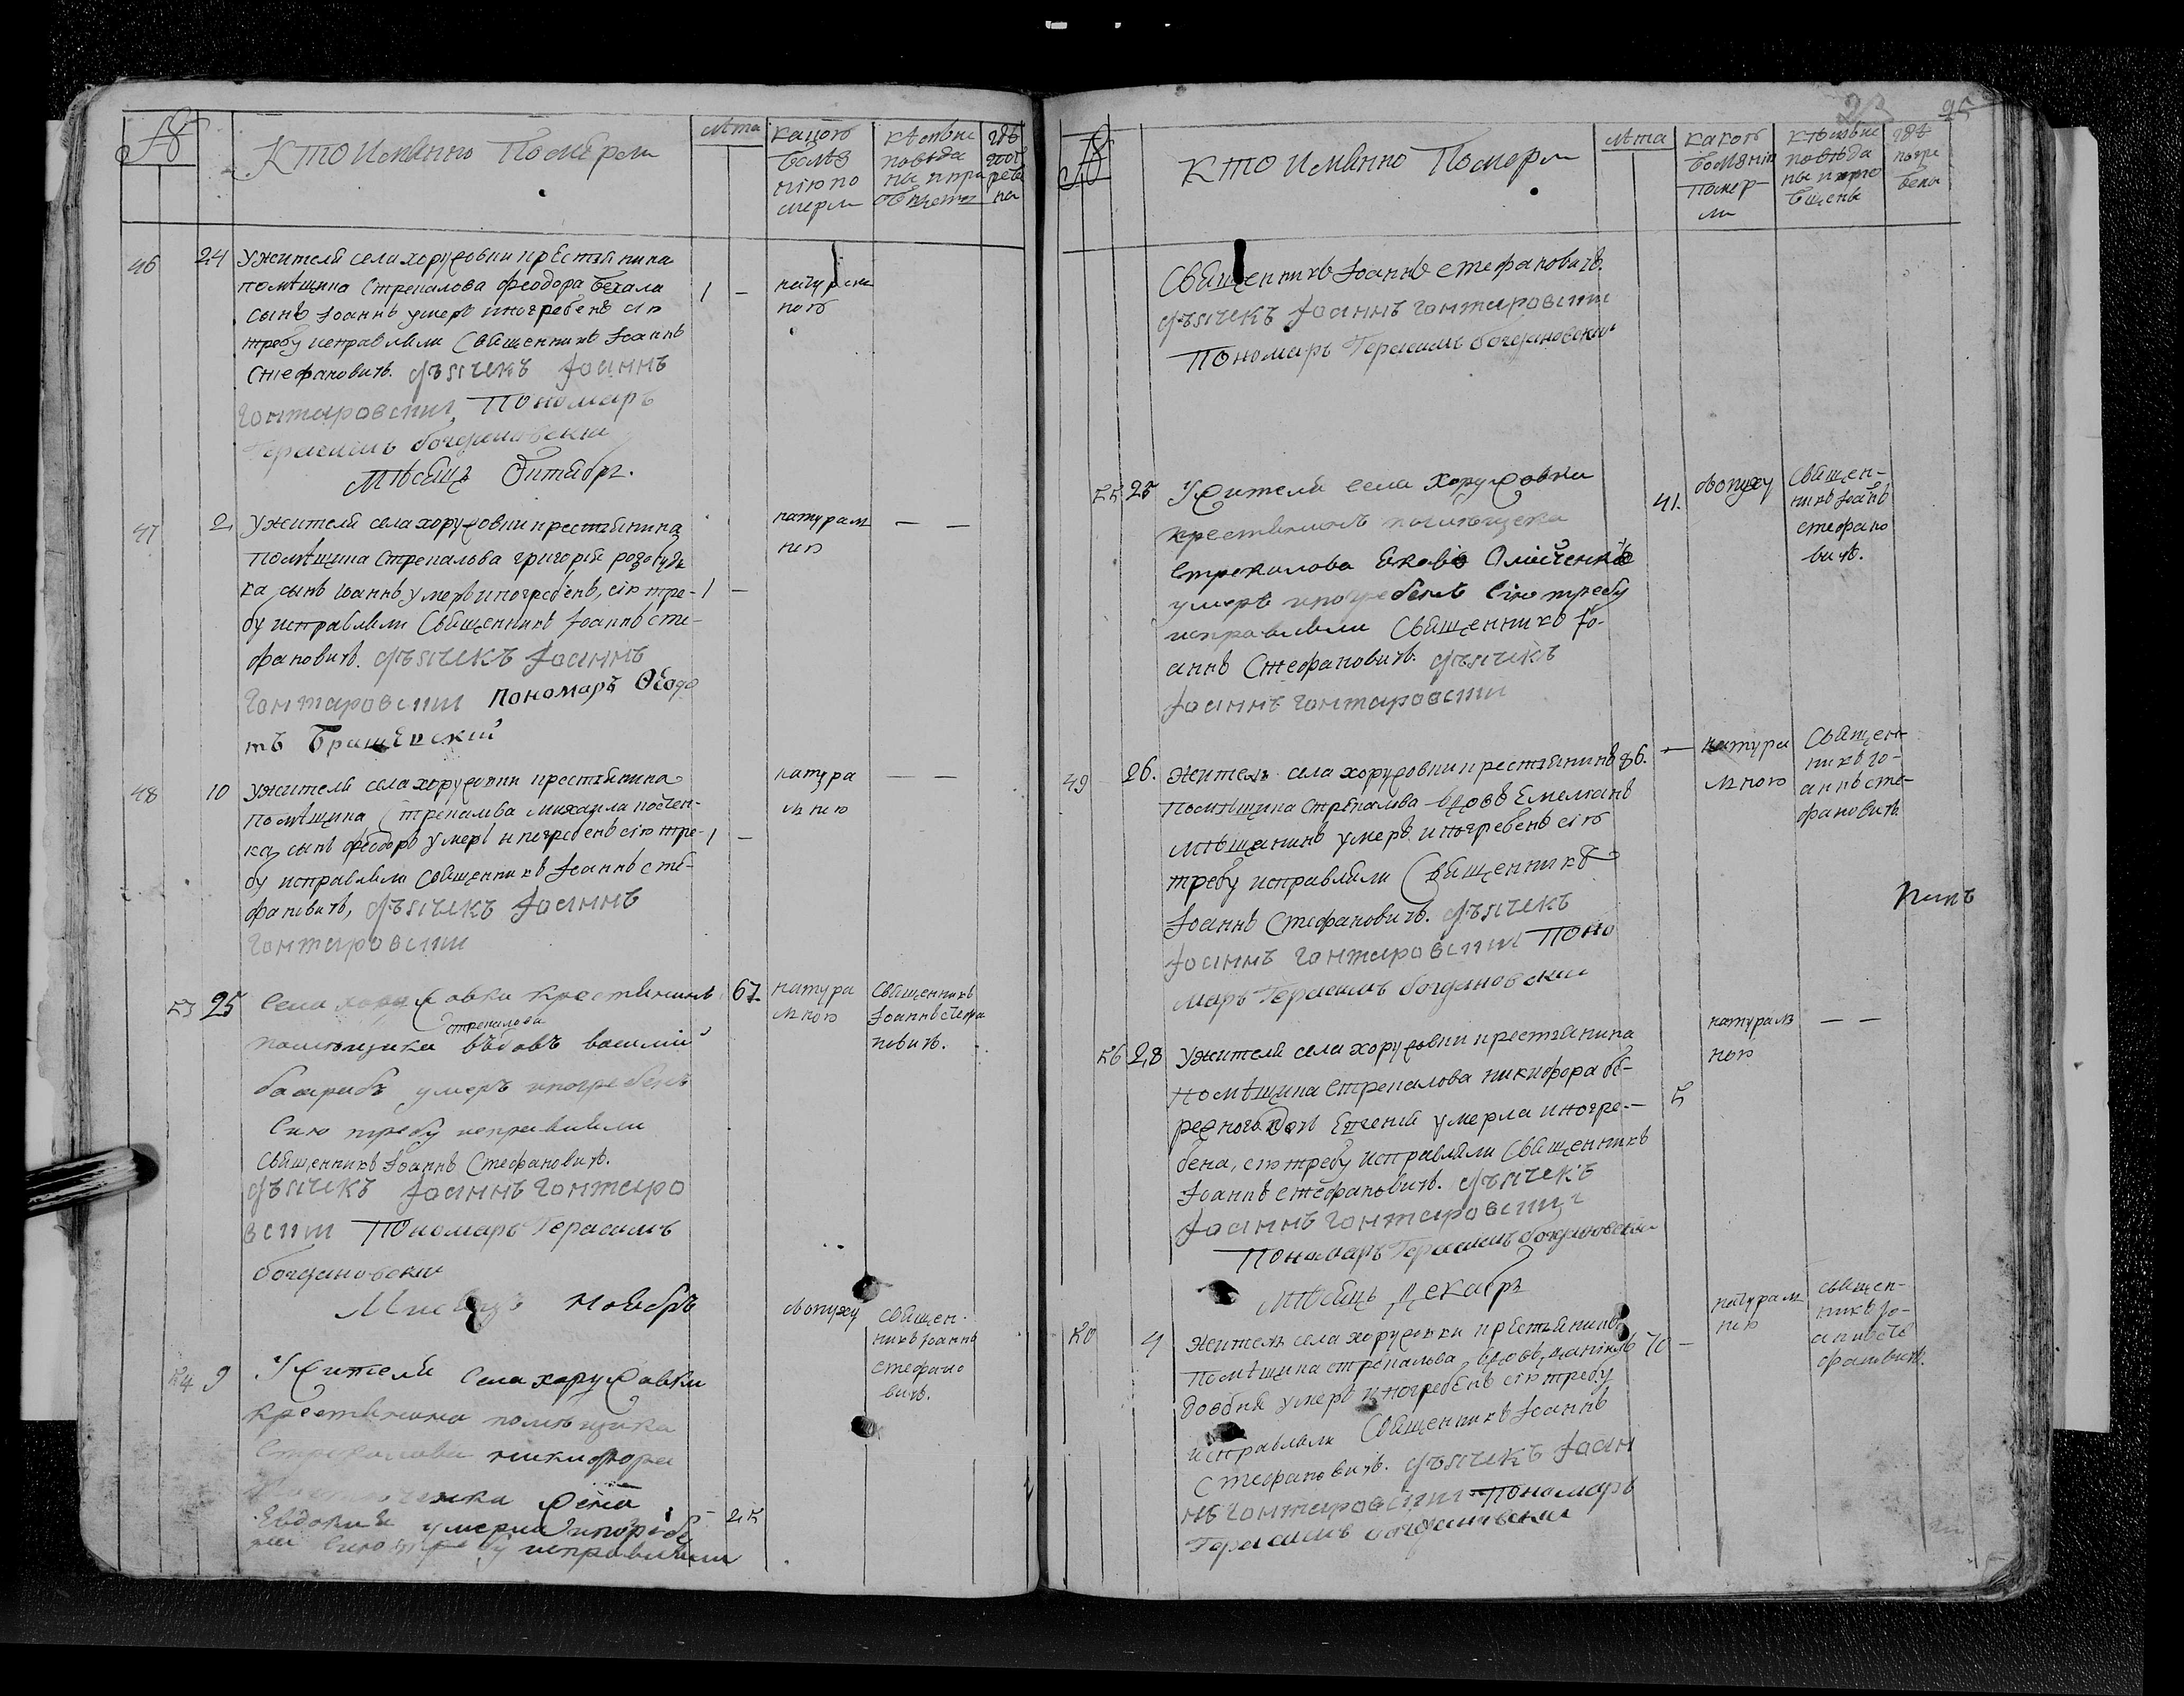 Кто именно Померли
лѣта
какою
болѣз
нію по
мерли
кѣмъ ис
повѣда
ны и прі
общены
гдѣ
пог
ребе
ны
46
24
У жителя села хоружовки крестянина
помѣщика Стрекалова Феодора
сынъ Іоаннъ умеръ и погребенъ сію
требу исправляли Священникъ Іоаннъ
Стефановичъ. дьячекъ Іоаннъ
гонтаровскии Пономаръ
Герасимъ богдановскии
1 —
натурал
ною
Мѣсяцъ Октябрь.
47
2
У жителя села хоружовки крестянина
Помѣщика Стрекалова григорія
ка сынъ Іоаннъ умеръ и погребенъ, сію тре-
бу исправляли Священникъ Іоаннъ Сте-
фановичъ. дьячекъ Іоаннъ
гонтаровскии пономарь Ѳеодо
тъ
1 —
натурал
ною
— —
48
10
У жителя села хоружовки крестянина
помѣщика Стрекалова михаила
ка сынъ феодоръ умеръ и погребенъ сію тре-
бу исправляли Священникъ Іоаннъ Сте-
фановичъ, дьячекъ Іоаннъ
гонтаровскии
1 —
натура
лною
— —
53
25
Села хоружовки крестянинъ
Стрекалова
помѣщика въдовъ василий
умеръ и погребенъ
Сию требу исправляли
Священникъ Іоаннъ Стефановичъ.
дьячекъ Іоаннъ гонтаро
вскии Пономаръ Герасимъ
богдановскии
67
натура
лною
Священникъ
Іоаннъ Стефа
новичъ.
Мѣсяцъ Ноябрь
54
9
У жителя Села хоружовки
крестянина помѣщика
Стрекалова никифора
жена
Евдокия умерла и погребе
на Сию требу исправляли
25
Священ-
никъ Іоаннъ
Стефано
вичъ.
23
25
Кто именно Померли
лѣта
какою
болѣзнію
помер-
ли
кѣмъ ис
повѣда
ны и прио
бщены
гдѣ
погре
бены
Священникъ Іоаннъ Стефановичъ.
дьячекъ Іоаннъ гонтаровскии
Пономаръ Герасимъ богдановскии
55
25
Жителя села Хоружовки
крестянинъ помѣщика
Стрекалова
умеръ и погребенъ Сию требу
исправляли Священникъ Іо-
аннъ Стефановичъ. дьячекъ
Іоаннъ гонтаровскии
41.
Священ-
никъ Іоаннъ
Стефано
вичъ.
49
26.
Житель села хоружовки крестянинъ
Помѣщика Стрекалова вдовъ Емелианъ
умеръ и погребенъ сію
требу исправляли Священникъ
Іоаннъ Стефановичъ. дьячекъ
Іоаннъ гонтаровскии Поно
маръ Герасимъ богдановскии
86. —
натура
лною
Священ-
никъ Іо-
аннъ Сте-
фановичъ.
никъ
56
28
У жителя села хоружовки крестянина
помѣщика Стрекалова никифора бе-
режного дочь умерла и погре-
бена, сію требу исправляли Священникъ
Іоаннъ Стефановичъ. дьячекъ
Іоаннъ гонтаровскии
Пономаръ Герасимъ богдановскии
5
натурал
ною
— —
Мѣсяцъ Декабрь
50
4
Житель села хоружовки крестянинъ
Помѣщика Стрекалова, вдовъ,
умеръ и погребенъ сію требу
исправляли Священникъ Іоаннъ
Стефановичъ. дьячекъ Іоан
нъ гонтаровскии Пономаръ
Герасимъ богдановскии
70 —
натурал
ною
Священ-
никъ Іо-
аннъ Сте
фановичъ.